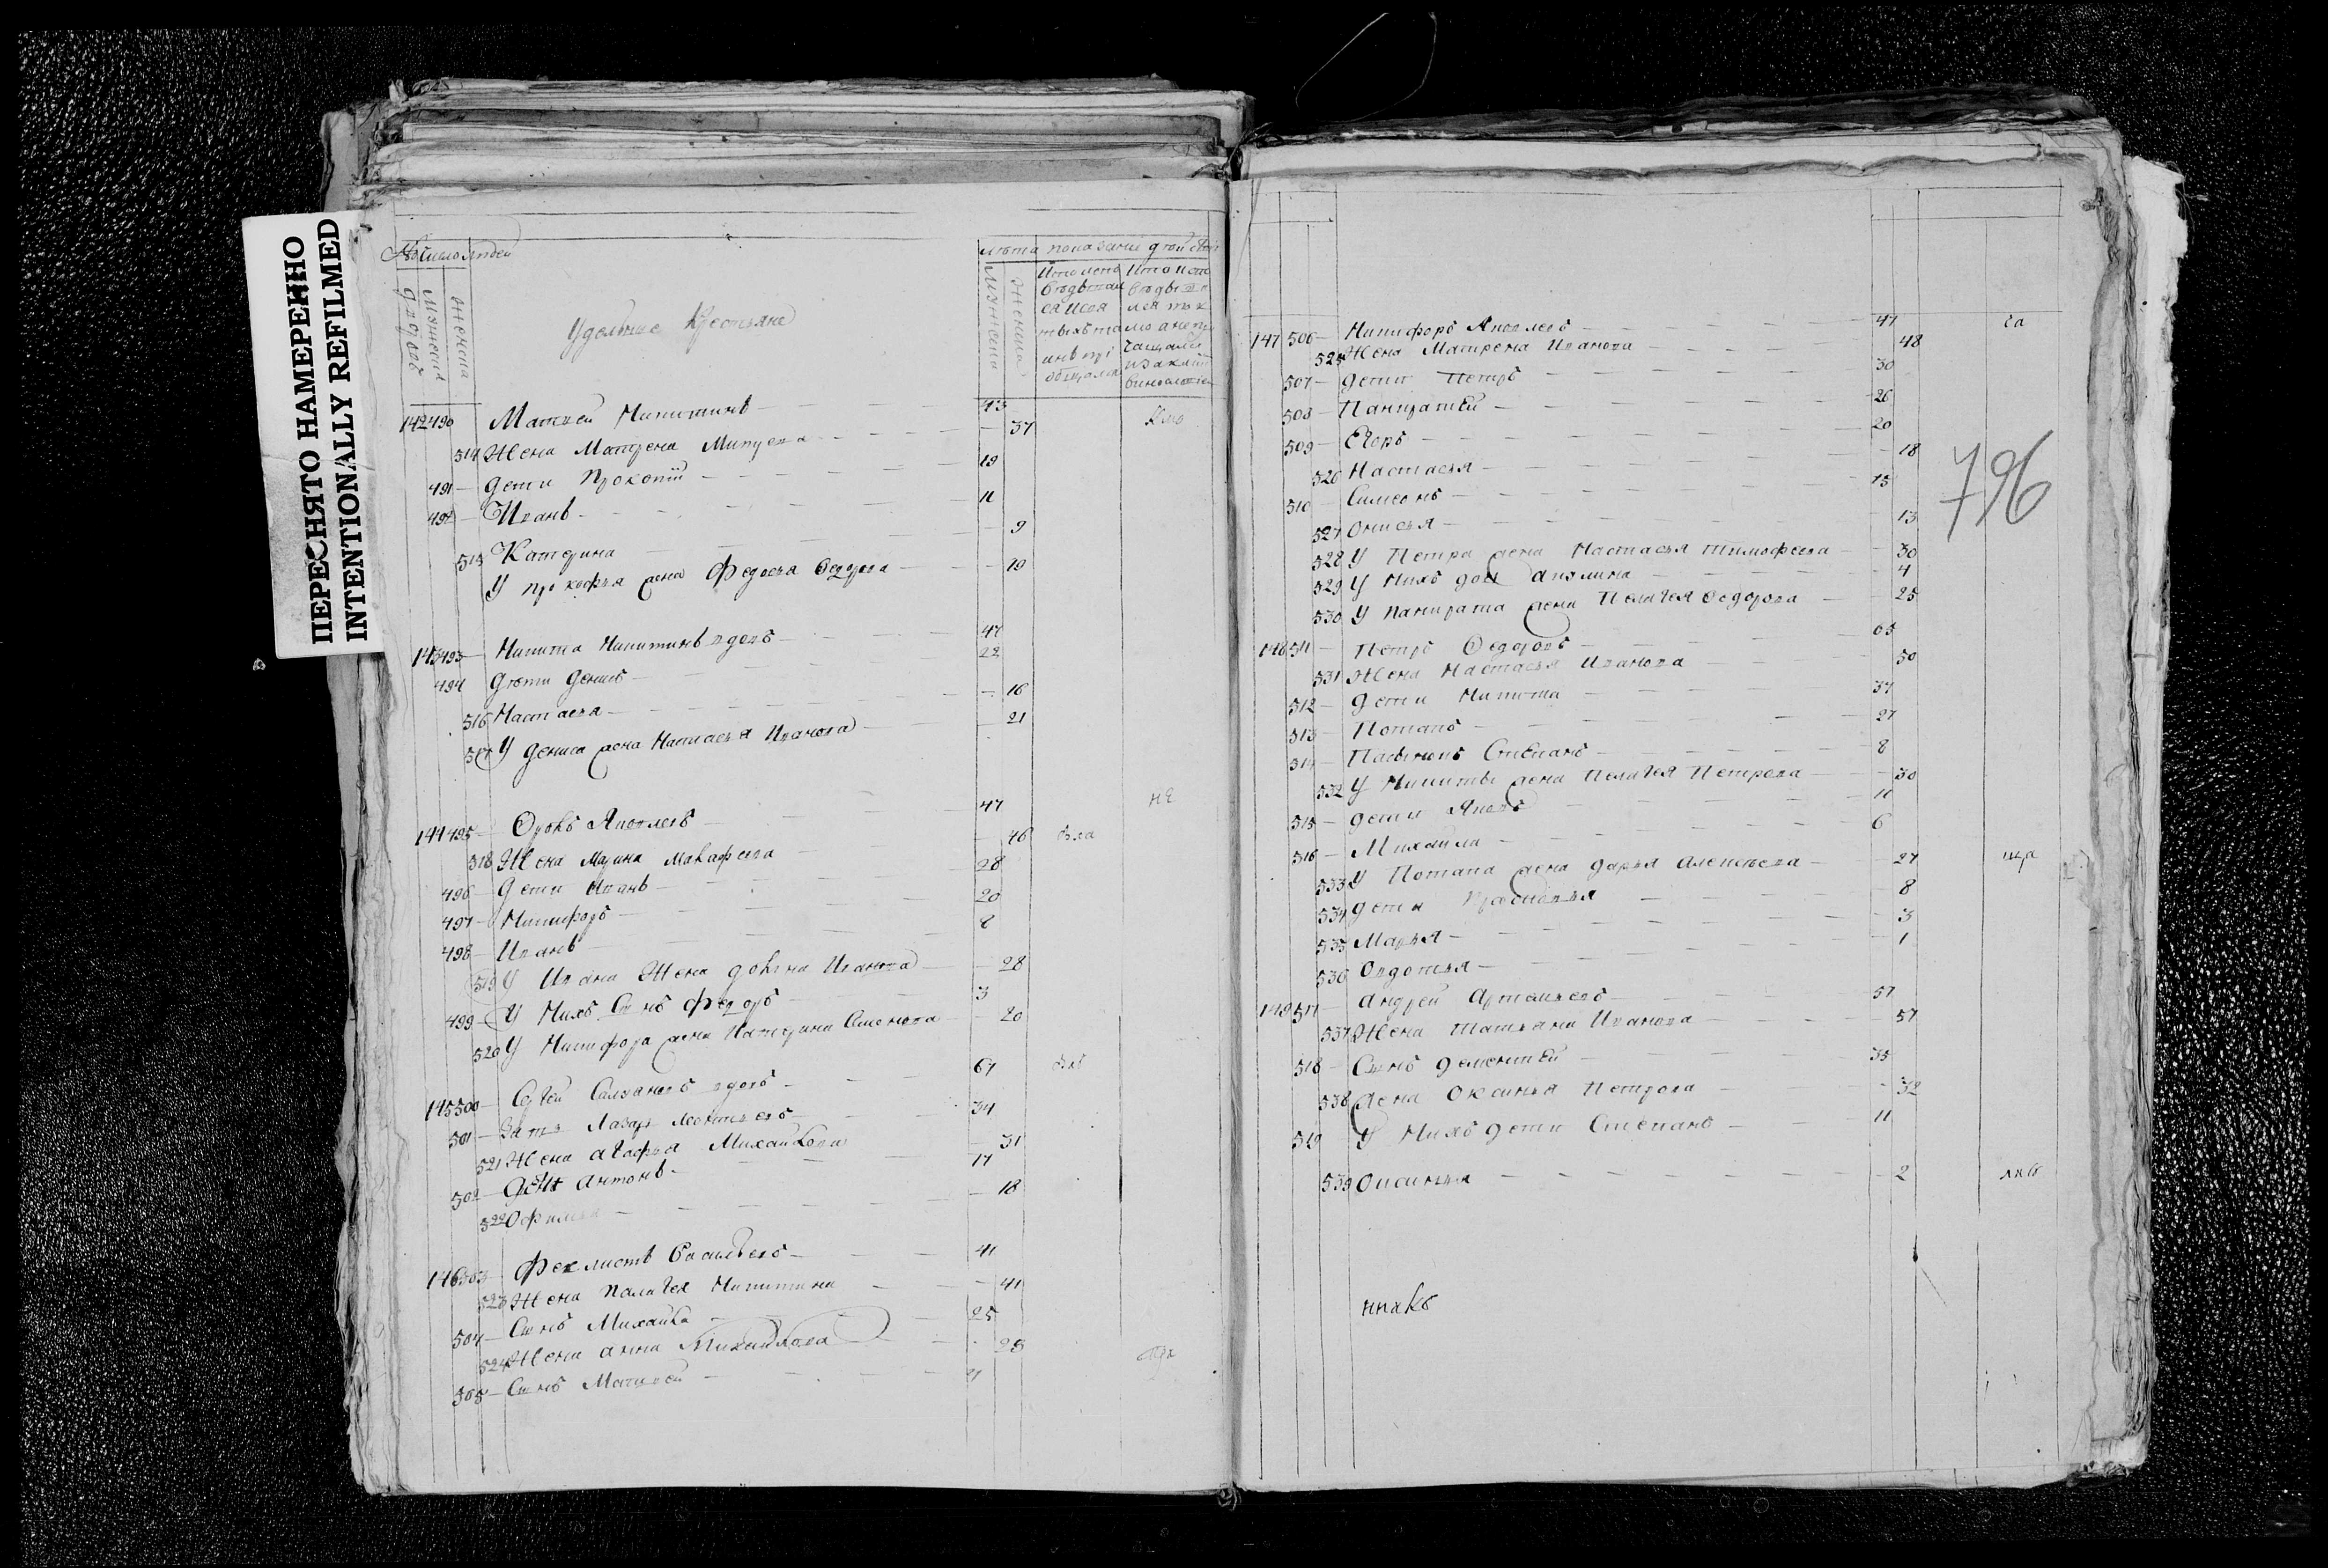 ПЕРЕСНЯТО НАМЕРЕННО
INTENTIONALLY REFILMED
Число людей
лѣта показаніе
дворовъ
мужеска
женска
Удельные крестьяне
142 490 Матвей Никитинъ 43
514 Жена Матрена 37
491 дети Прокопiй 19
492 Иванъ 11
515 Катерина 9
У прокофья жена Федосья Федорова 19
143 493 Никита Никитинъ вдовъ 47
494 дети Денисъ 22
516 Настасья 16
517 У Дениса жена Настасья Иванова 21
144 495 Яковлевъ 47
518 Жена Марина 46
496 дети Иванъ 28
497 Никифоръ 20
498 Иванъ 8
519 У Ивана Жена Иванова 28
499 У Нихъ Сынъ Федоръ 3
520 У Никифора жена Катерина Семенова 20
145 500 Сергей вдовъ 67
501 Зять Лазарь 34
521 Жена Агафья Михайлова 31
502 дети Антонъ 17
522 Офимья 18
146 503 Феклистъ Васильевъ 41
523 Жена Палагея Никитина 41
504 Сынъ Михайла 25
524 Жена Анна Михайлова 23
505 Сынъ Матвей
147 506 Никифоръ Яковлевъ 47
525 Жена Матрена Иванова 48
507 дети Петръ 30
508 Панкратей 26
509 Егоръ 20
526 Настасья 18
510 Симеонъ 15
527 Онисья 13
528 У Петра жена Настасья Тимофеева 30
529 У Нихъ доч Акулина 4
530 У Панкрата жена Пелагея Федорова 25
796
148 511 Петръ Федоровъ 65
531 Жена Настасья Иванова 50
512 дети Никита 37
513 Потапъ 27
514 Пасынокъ Степанъ 8
532 У Никиты жена Пелагея Петрова 30
515 дети Яковъ 11
516 Михайла 6
533 У Потапа жена Дарья Алексеева 27
534 дети Прасковья 8
535 Марья 3
536 Овдотья 1
149 517 Андрей Артемьевъ 57
537 Жена Татьяна Иванова 57
518 Сынъ Дементей 35
538 жена Оксинья Петрова 32
519 У Нихъ дети Степанъ 11
539 Оксинья 2